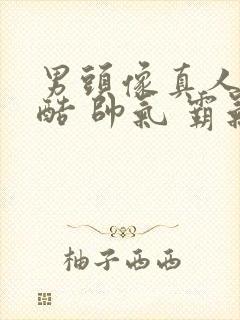 男頭像真人
酷 帥氣 霸氣
柚子西西